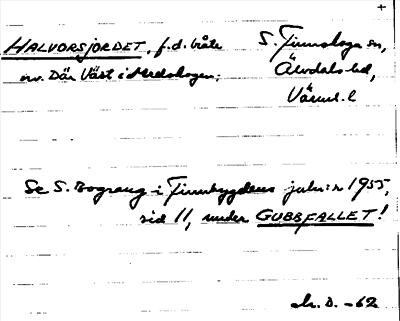 +
HALVORSJORDET, f.d. bråte S. Finnskoga sn,
nv. Där Väst i Medskogen; Älvdals hd,
Värml. l
Se S. Bograng i Finnbygdens julnr 1955,
sid 11, under GUBBFALLET!
D. -62